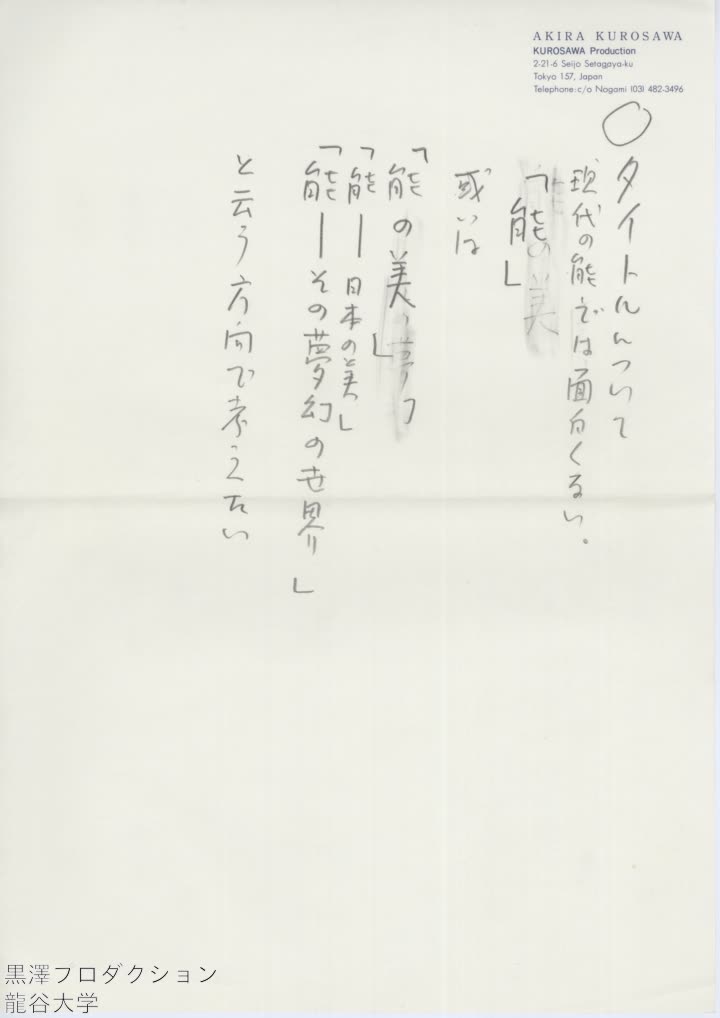 AKIRA KUROSAWA
KUROSAWA Production
2-21-6 Seijo Setagaya-ku
Tokyo 157, Japan
Telephone:c/o Nogami (03) 482-3496
○タイトルについて
現代の能では面白くない。
「能」
或いは
「能の美」
「能―日本の美」
「能―その夢幻の世界」
と云う方向で考えたい
黒澤プロダクション
龍谷大学